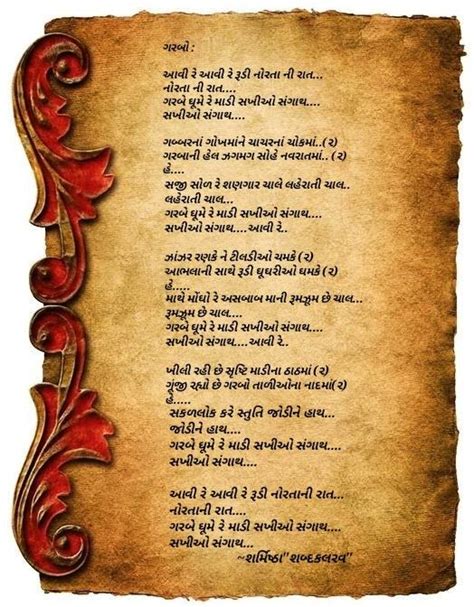 ગરબો :
આવી રે આવી રે રૂડી નોરતા ની રાત...
નોરતા ની રાત....
ગરબે ઘૂમે રે માડી સખીઓ સંગાથ....
સખીઓ સંગાથ....
ગબ્બરનાં ગોખમાંને ચાચરનાં ચોકમાં..(૨)
ગરબાની હેલ ઝગમગ સોહે નવરાતમાં..(૨)
હે....
સજી સોળ રે શણગાર ચાલે લહેરાતી ચાલ..
લહેરાતી ચાલ...
ગરબે ઘૂમે રે માડી સખીઓ સંગાથ....
સખીઓ સંગાથ....આવી રે..
ઝાંઝર રણકે ને ટીલડીઓ ચમકે (૨)
આભલાની સાથે રૂડી ઘૂઘરીઓ ઘમકે (૨)
હે.....
માથે મોંઘો રે અસબાબ માની રૂમઝૂમ છે ચાલ...
રૂમઝૂમ છે ચાલ....
ગરબે ઘૂમે રે માડી સખીઓ સંગાથ....
સખીઓ સંગાથ....આવી રે..
ખીલી રહી છે સૃષ્ટિ માડીના ઠાઠમાં (૨)
ગૂંજી રહ્યો છે ગરબો તાળીઓના નાદમાં(૨)
હે.....
સકળલોક કરે સ્તુતિ જોડીને હાથ...
જોડીને હાથ....
ગરબે ઘૂમે રે માડી સખીઓ સંગાથ....
સખીઓ સંગાથ....
આવી રે આવી રે રૂડી નોરતાની રાત...
નોરતાની રાત....
ગરબે ઘૂમે રે માડી સખીઓ સંગાથ....
સખીઓ સંગાથ....
~શર્મિષ્ઠા"શબ્દકલરવ"